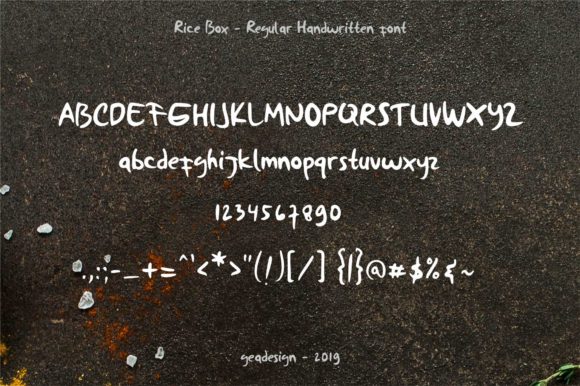 Rice Box - Regular Handwritten font
ABCDEFGHIJKLMNOPQRSTUVWXYZ
abcdefghijklmnopqrstuvwxyz
1234567890
.,:;-_+=^`'<*>"(!)[/]{|}@#$%&~
geadesign - 2019